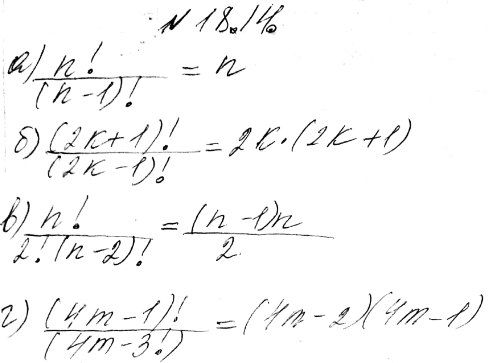 N 18.14.
а) n! / (n-1)! = n
б) (2k+1)! / (2k-1)! = 2k·(2k+1)
в) n! / 2!(n-2)! = (n-1)n / 2
г) (4m-1)! / (4m-3!) = (4m-2)(4m-1)